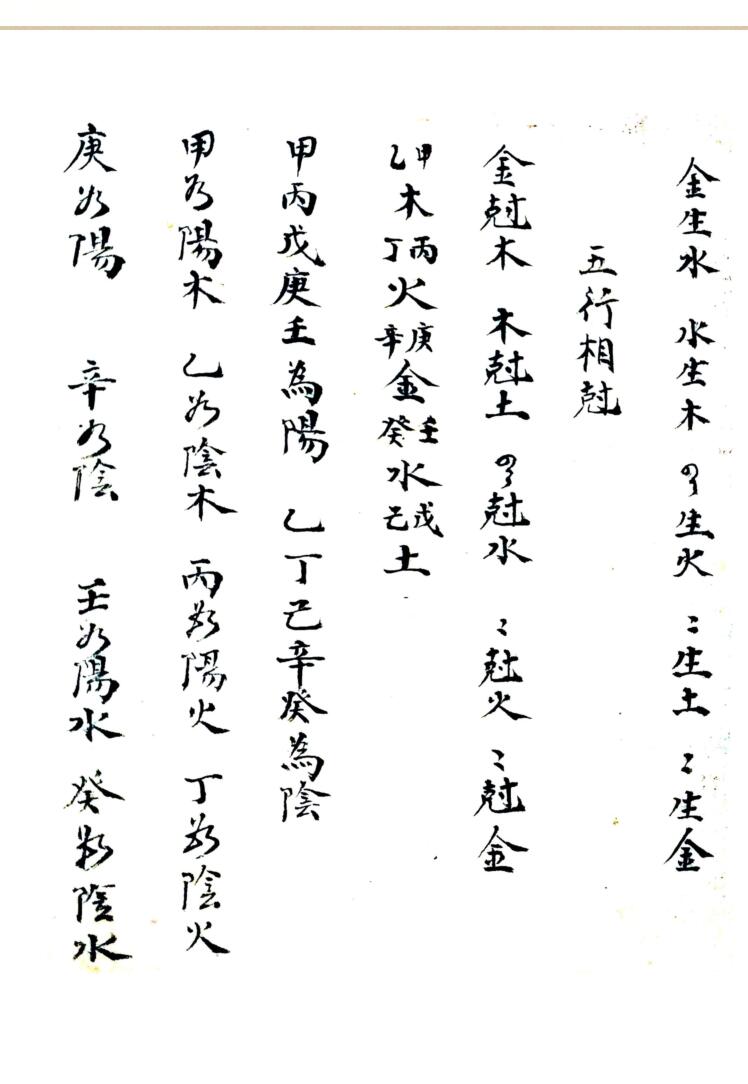 金生水　水生木　〻生火　〻生土　〻生金
五行相尅
金尅木　木尅土　〻尅水　〻尅火　〻尅金
甲乙木丙丁火庚辛金壬癸水戊己土
甲丙戊庚壬為陽　乙丁己辛癸為陰
甲為陽木　乙為陰木　丙為陽火　丁為陰火
庚為陽　辛為陰　壬為陽水　癸為陰水